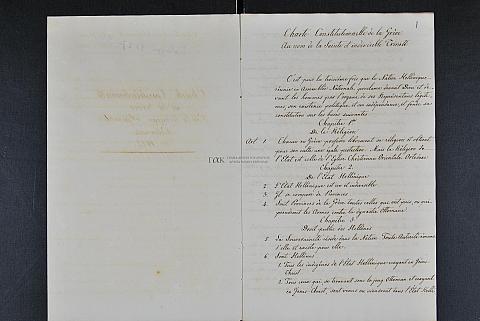 1
Charte Constitutionnelle de la Grèce
Au nom de la Sainte et indivisible Trinité
C'est pour la troisième fois que la Nation Hellénique
réunie en Assemblée Nationale, proclame devant Dieu et de-
vant les hommes par l'organe de ses Représentants légiti-
mes, son existence politique, et son indépendance, et fonde sa
constitution sur les bases suivantes
Chapitre 1er
De la Religion
Art 1 Chacun en Grèce professe librement sa religion et obtient
pour son culte une égale protection. Mais la Religion de
l'Etat est celle de l'Eglise Chrétienne Orientale Orthodoxe
Chapitre 2
De l'Etat Hellénique
2 L'Etat Hellénique est un et indivisible
3 Il se compose de Provinces
4 Sont Provinces de la Grèce toutes celles qui ont pris, ou qui
prendront les armes contre la dynastie Ottomane
Chapitre 3
Droit public des Hellènes
5 La Souveraineté réside dans la Nation Toute Autorité émane
d'elle et existe pour elle.
6 Sont Hellènes
1. Tous les indigènes de l'Etat Hellénique croyant en Jésus-
Christ
2 Tous ceux qui, se trouvant sous le joug Ottoman et croyant
en Jésus-Christ, sont venus ou viendront dans l'Etat Hellé
ΓΑΚ